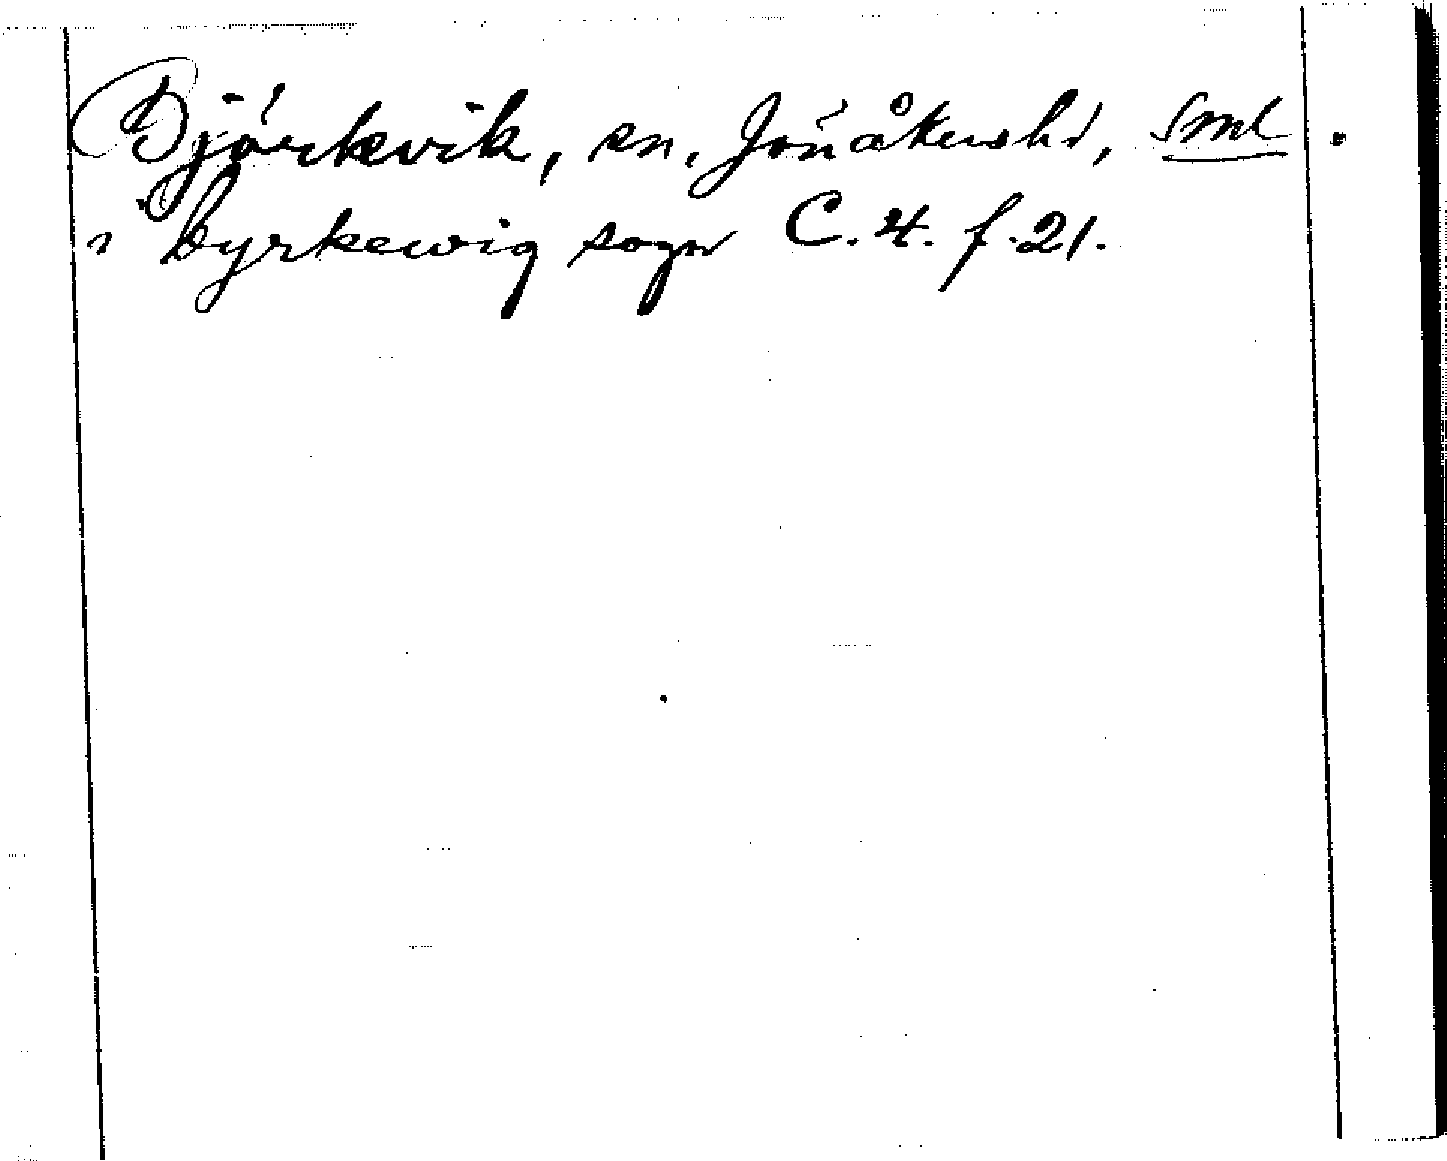 Björkvik, sn, Jönåkershd, Sml.
i Byrkewig sogn C. 4. f. 21.